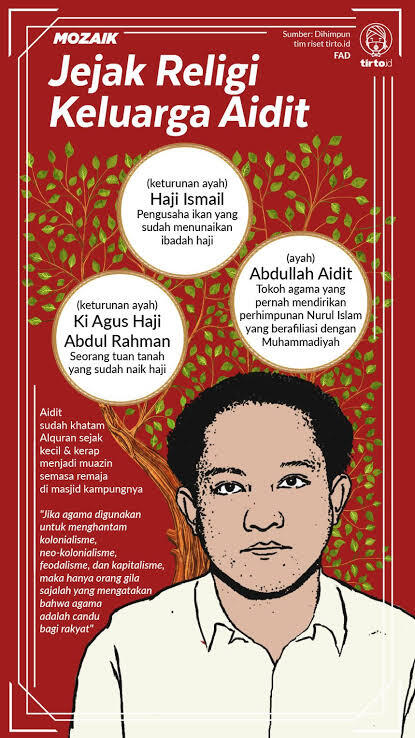 MOZAIK
Sumber: Dihimpun
tim riset tirto.id
FAD
tirto.id
Jejak Religi
Keluarga Aidit
(keturunan ayah)
Haji Ismail
Pengusaha ikan yang
sudah menunaikan
ibadah haji
(ayah)
Abdullah Aidit
Tokoh agama yang
pernah mendirikan
perhimpunan Nurul Islam
yang berafiliasi dengan
Muhammadiyah
(keturunan ayah)
Ki Agus Haji
Abdul Rahman
Seorang tuan tanah
yang sudah naik haji
Aidit
sudah khatam
Alquran sejak
kecil & kerap
menjadi muazin
semasa remaja
di masjid kampungnya
"Jika agama digunakan
untuk menghantam
kolonialisme,
neo-kolonialisme,
feodalisme, dan kapitalisme,
maka hanya orang gila
sajalah yang mengatakan
bahwa agama
adalah candu
bagi rakyat"